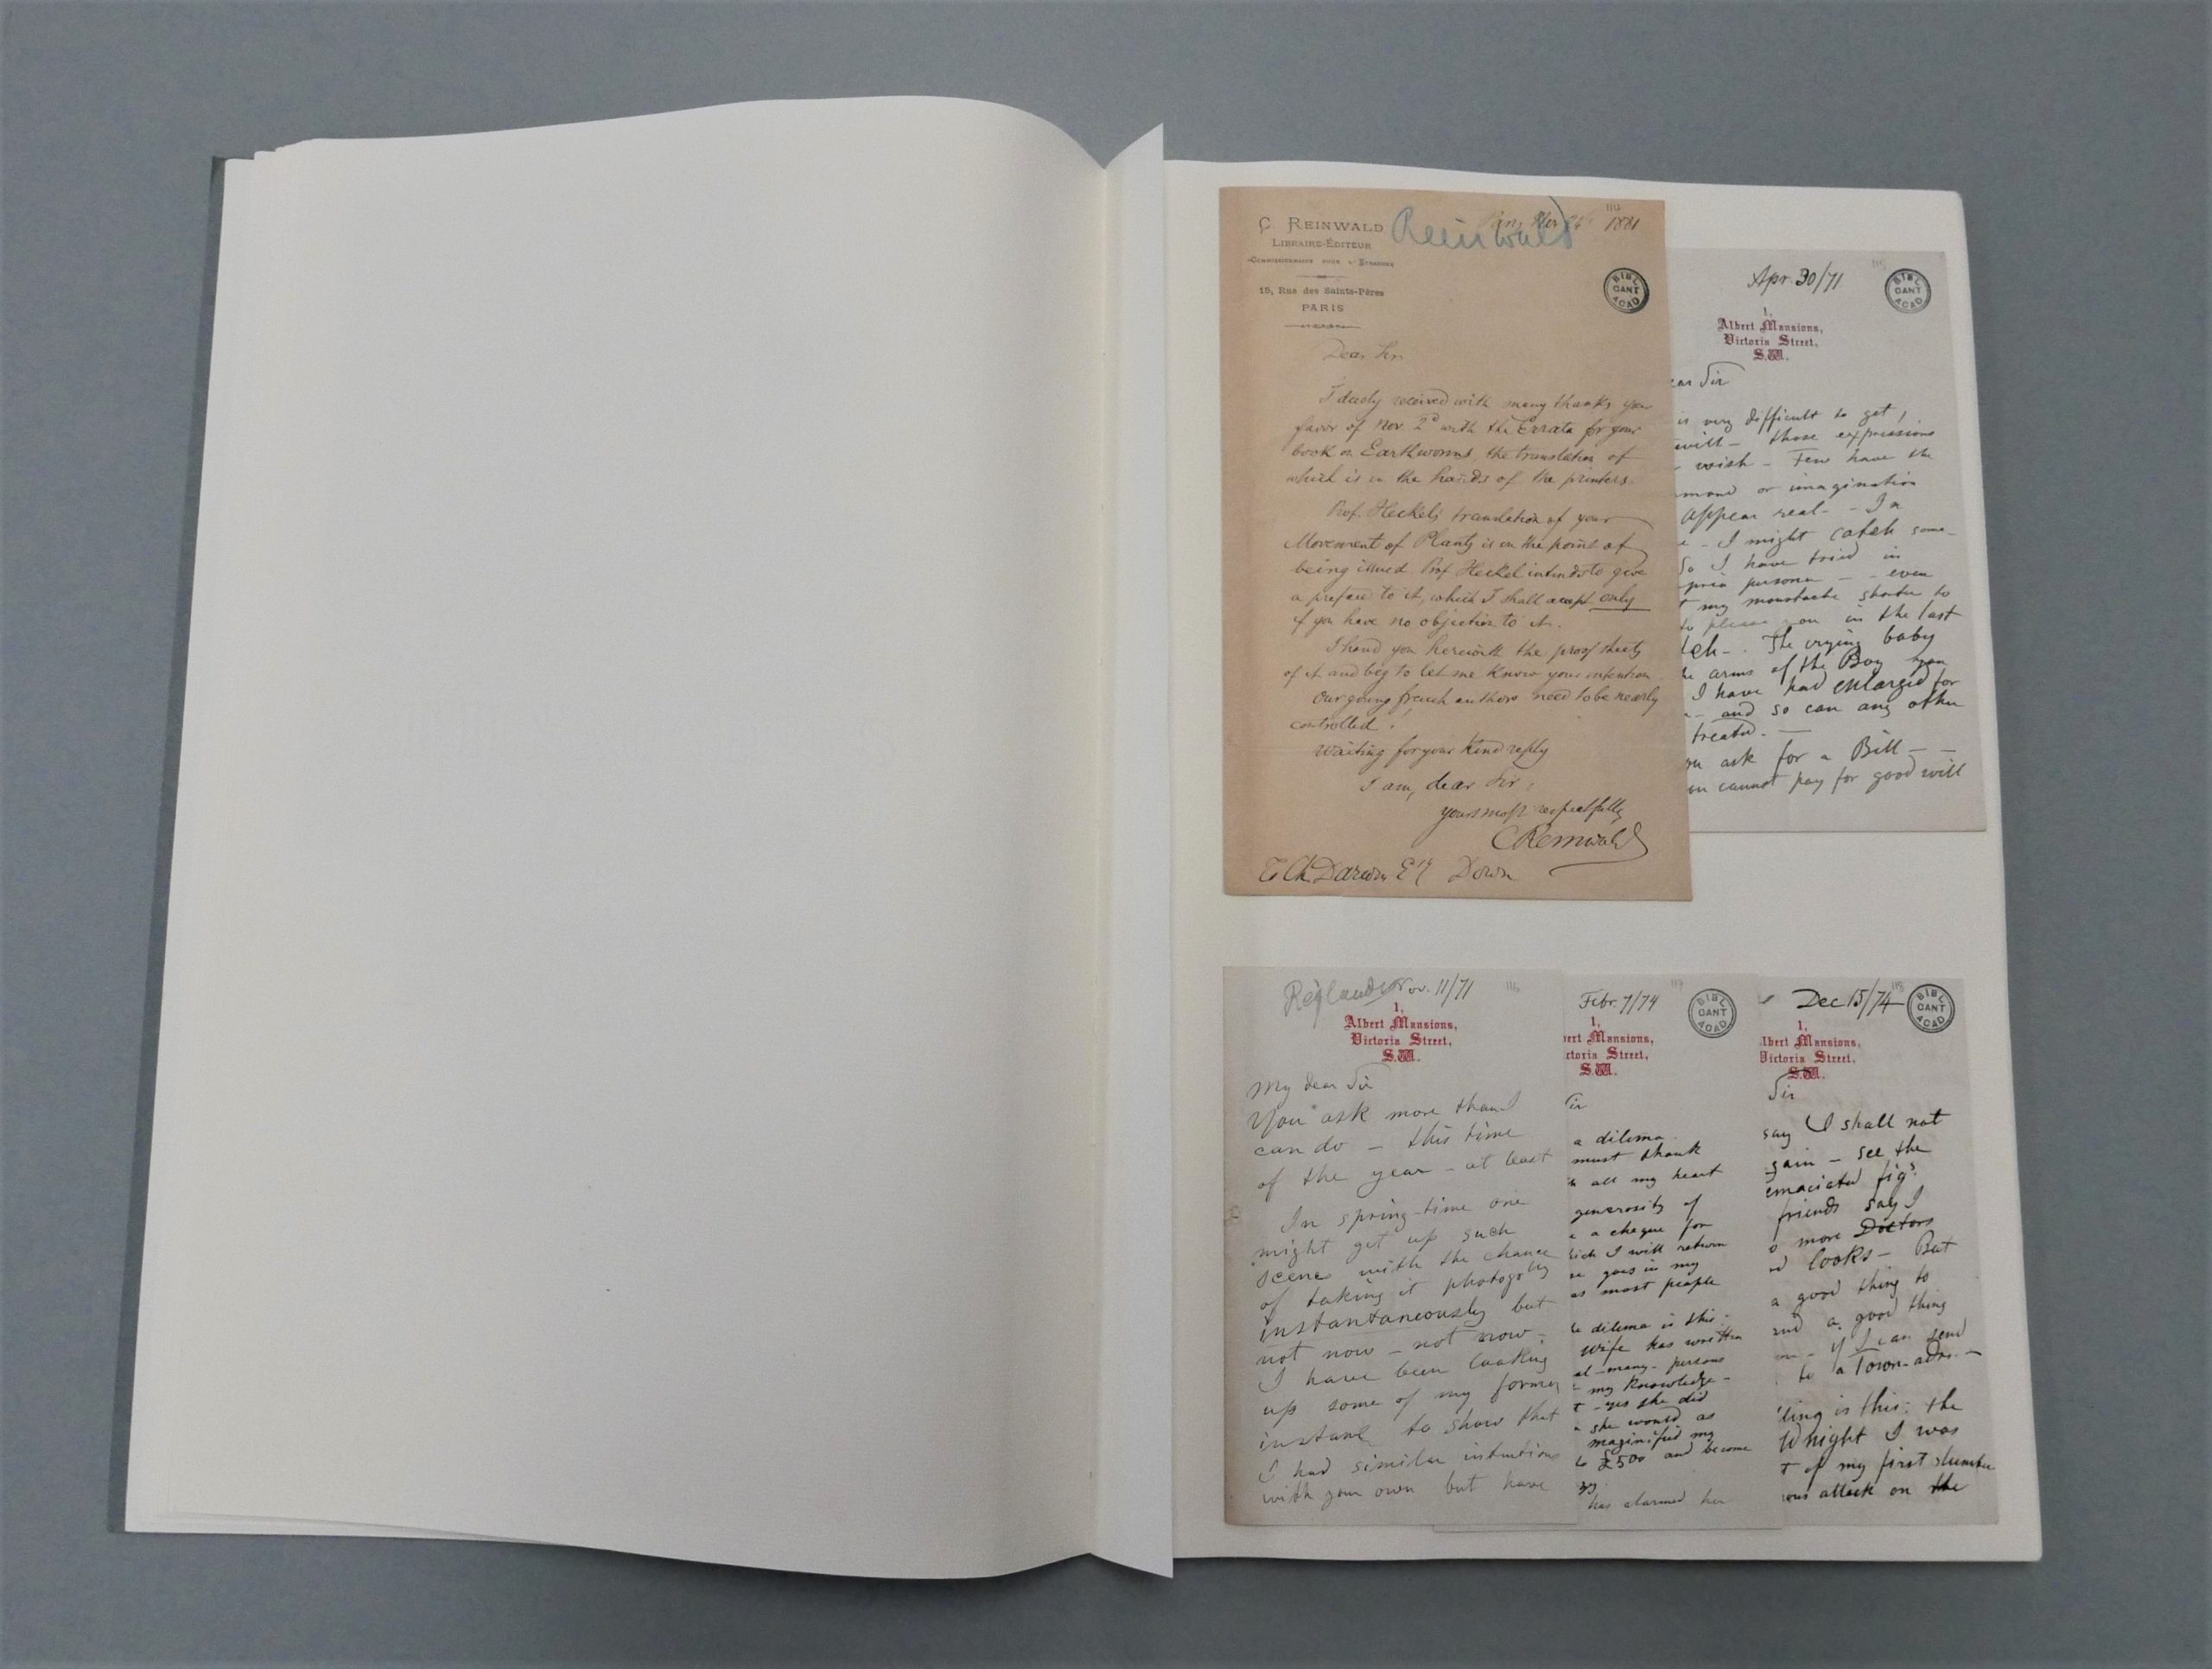 C. REINWALD
LIBRAIRE-ÉDITEUR
COMMISSIONNAIRE POUR L'ÉTRANGER
15, Rue des Saints-Pères
PARIS
Reinwald
1881
114
BIBL
CANT
ACAD
Dear Sir
I duely received with many thanks your
favor of Nov 2d with the Errata for your
book on Earthworms, the translation of
which is in the hands of the printers.
Prof. Heckels translation of your
Movement of Plants is on the point of
being issued. Prof Heckel intends to give
a preface to it, which I shall accept only
if you have no objection to it.
I hand you herewith the proof sheets
of it and beg to let me know your intention
Our young french authors need to be nearly
controlled!
Waiting for your kind reply
I am, dear Sir,
yours most respectfully
CReinwald
To Ch. Darwin Esq Down
115
Apr. 30/71
BIBL
CANT
ACAD
1,
Albert Mansions,
Victoria Street,
S.W.
ear Sir
is very difficult to get,
will – those expressions
wish – Few have the
mand or imagination
appear real – – In
e – I might catch some-
So I have tried in
pria persona – – even
t my moustache shorter to
to please you in the last
tch – . The crying baby
he arms of the Boy you
I have had enlarged for
– and so can any other
treated. —
ou ask for a Bill – –
ou cannot pay for good will
Rejlander
Nov. 11/71
116
1,
Albert Mansions,
Victoria Street,
S.W.
My dear Sir
You ask more than I
can do – this time
of the year – at least
In spring-time one
might get up such
scene with the chance
of taking it photogphy
instantaneously but
not now – not now –
I have been looking
up some of my former
instane to show that
I had similar intentions
with your own but have
Febr. 7/74
117
BIBL
CANT
ACAD
1,
bert Mansions,
ctoria Street,
S.W.
Sir
a dilema
must thank
h all my heart
generosity of
e a cheque for
ich I will return
goes in my
as most people
e dilema is this:
wife has written
al – many – persons
my knowledge –
t – yes she did
she would as
maginified my
to £500 and become
has alarmed her
Dec 15/74
118
BIBL
CANT
ACAD
1,
lbert Mansions,
Victoria Street,
S.W.
Sir
say I shall not
gain – see the
emaciated figs
friends say I
o more Doctors
nd looks – But
a good thing to
and a good thing
– if I can send
to a Town-adrs. –
ling is this: the
night I was
t of my first slumber
ous attack on the